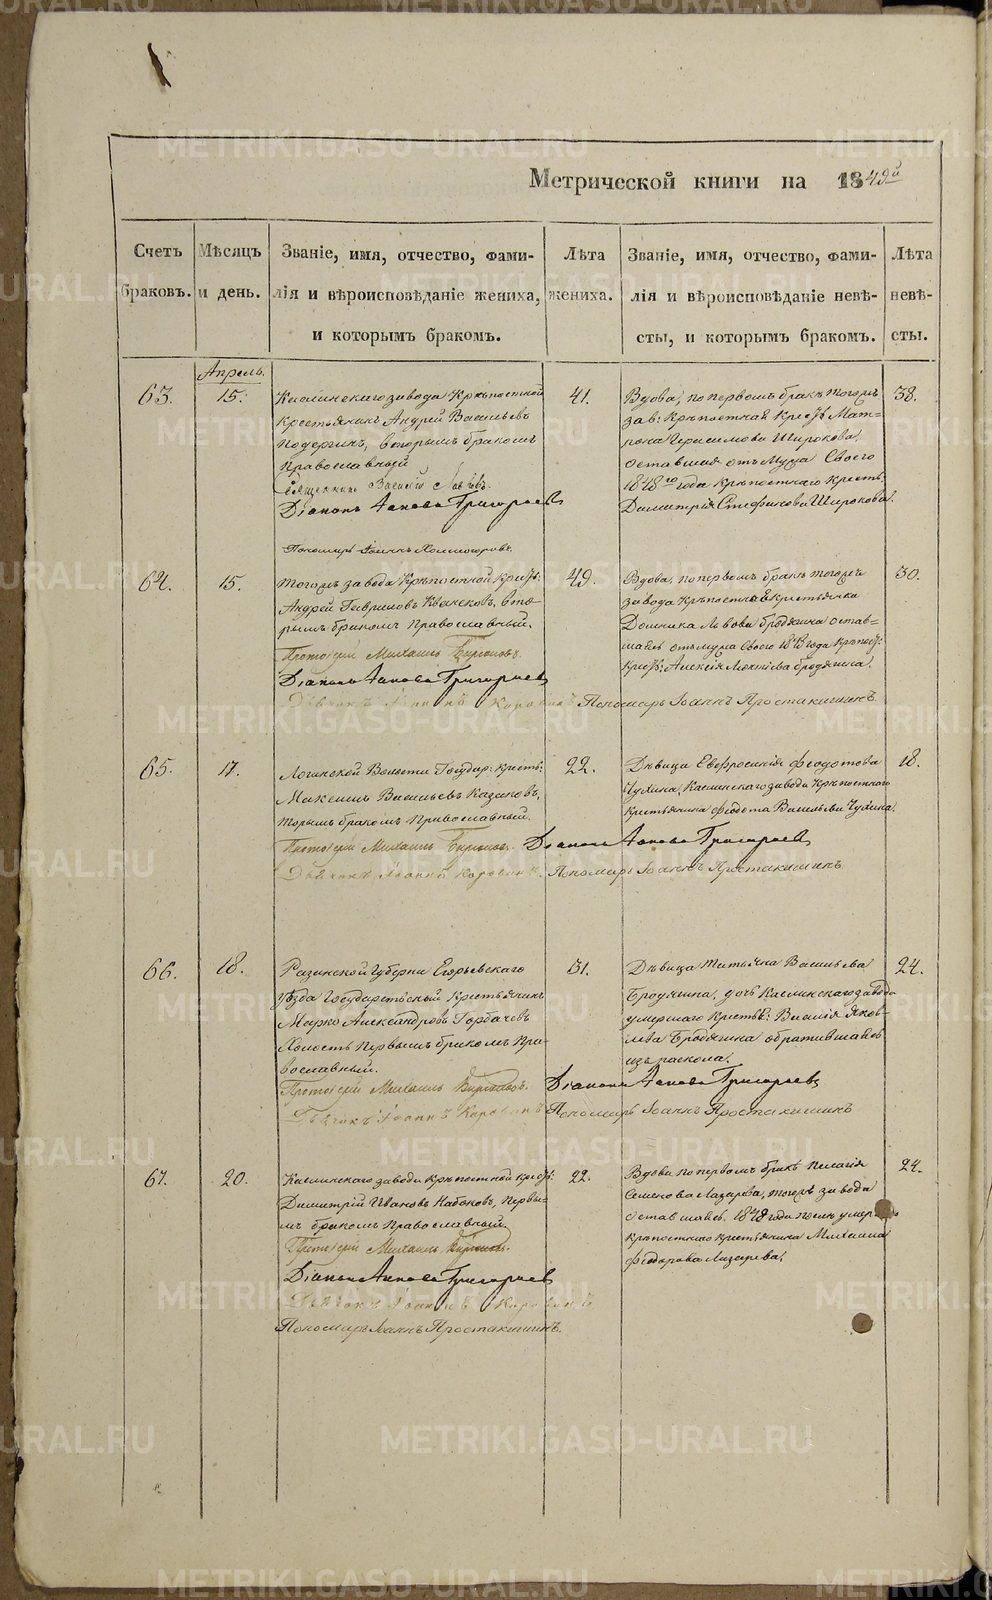 Метрической книги на 1849й
Счетъ браковъ.
Мѣсяцъ и день.
Званіе, имя, отчество, фами-
лія и вѣроисповѣданіе жениха,
и которымъ бракомъ.
Лѣта жениха.
Званіе, имя, отчество, фами-
лія и вѣроисповѣданіе невѣ-
сты, и которымъ бракомъ.
Лѣта невѣ-
сты.
Апрель.
63.
15.
Каслинскаго завода Крѣпостной
Крестьянинъ Андрей Васильевъ
вторымъ бракомъ
Православный
Священникъ Василій
Діаконъ Іаковъ Григорьевъ
Пономарь Іоаннъ Холмогоровъ.
41.
Вдова, по первомъ бракѣ тогожъ
зав: Крѣпостная Мат-
рона Герасимова Широкова,
оставшая отъ Мужа Своего
1848го года Крѣпостнаго Кресть:
Димитрія Стефанова Широкова.
38.
64.
15.
Тогожъ завода Крѣпостной
Андрей Гавриловъ вто-
рымъ бракомъ Православный.
Протоіерей Михаилъ Бирюковъ.
Діаконъ Іаковъ Григорьевъ
Дьячекъ Іоаннъ Коровинъ Пономарь Іоаннъ Простакишинъ.
49.
Вдова, по первомъ бракѣ тогожъ
завода Крѣпостная Крестьянка
Домника Львова Бродягина остав-
шаяся отъ мужа Своего 1848 года
Алексѣя Бродягина.
30.
65.
17.
Волости Государ: Кресть:
Максимъ Васильевъ Казаковъ,
бракомъ Православный.
Протоіерей Михаилъ Бирюковъ. Діаконъ Іаковъ Григорьевъ
Дьячекъ Іоаннъ Коровинъ. Пономарь Іоаннъ Простакишинъ
22.
Дѣвица Евфросинія Феодотова
Чухина, Каслинскаго завода Крѣпостнаго
Крестьянина Феодота Васильева Чухина.
18.
66.
18.
Рязанской Губерніи Егорьевскаго
уѣзда Государственный Крестьянинъ
Марко Александровъ Горбачевъ
Холостъ Первымъ бракомъ Пра-
вославный.
Протоіерей Михаилъ Бирюковъ. Діаконъ Іаковъ Григорьевъ
Дьячекъ Іоаннъ Коровинъ Пономарь Іоаннъ Простакишинъ
31.
Дѣвица Татьяна Васильева
Бродягина, дочь Каслинскаго завода
умершаго Крестья: Василія Яков-
лева Бродягина обратившаяся
изъ раскола.
24.
67.
20.
Каслинскаго завода Крѣпостной
Димитрій Ивановъ Набоковъ, Первы-
мъ бракомъ Православный.
Протоіерей Михаилъ Бирюковъ.
Діаконъ Іаковъ Григорьевъ
Дьячекъ Іоаннъ Коровинъ
Пономарь Іоаннъ Простакишинъ.
22.
Вдова по первомъ бракѣ Пелагія
Семенова Лазарева, тогожъ завода
оставшаяся 1848 года
крѣпостнаго крестьянина Михаила
Феодорова Лазарева.
24.
METRIKI.GASO-URAL.RU